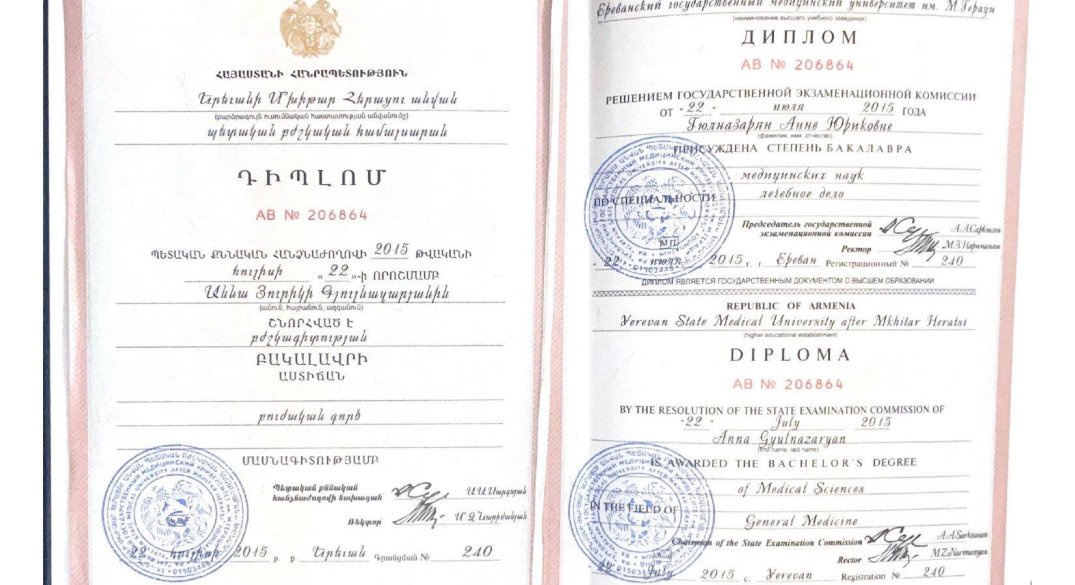 ՀԱՅԱՍՏԱՆԻ ՀԱՆՐԱՊԵՏՈՒԹՅՈՒՆ
Երևանի Մխիթար Հերացու անվան
(բարձրագույն ուսումնական հաստատության անվանումը)
պետական բժշկական համալսարան
ԴԻՊԼՈՄ
AB № 206864
ՊԵՏԱԿԱՆ ՔՆՆԱԿԱՆ ՀԱՆՁՆԱԺՈՂՈՎԻ 2015 ԹՎԱԿԱՆԻ
հուլիսի « 22 »-ի ՈՐՈՇՄԱՄԲ
Աննա Յուրիկի Գյուլնազարյանին
(անուն, հայրանուն, ազգանուն)
ՇՆՈՐՀՎԱԾ Է
բժշկագիտության
ԲԱԿԱԼԱՎՐԻ
ԱՍՏԻՃԱՆ
բուժական գործ
ՄԱՍՆԱԳԻՏՈՒԹՅԱՄԲ
Պետական քննական
հանձնաժողովի նախագահ Ա.Ա.Սարգսյան
Ռեկտոր Մ.Զ.Նարիմանյան
22 հուլիսի 2015 թ. Երևան Գրանցման № 240
Ереванский государственный медицинский университет им. М.Гераци
(наименование высшего учебного заведения)
ДИПЛОМ
AB № 206864
РЕШЕНИЕМ ГОСУДАРСТВЕННОЙ ЭКЗАМЕНАЦИОННОЙ КОМИССИИ
ОТ "22" июля 2015 ГОДА
Гюлназарян Анне Юриковне
(фамилия, имя, отчество)
ПРИСУЖДЕНА СТЕПЕНЬ БАКАЛАВРА
медицинских наук
лечебное дело
ПО СПЕЦИАЛЬНОСТИ
Председатель государственной
экзаменационной комиссии А.А.Саркисян
МП
Ректор М.З.Нариманян
22 июля 2015 г. г Ереван Регистрационный № 240
ДИПЛОМ ЯВЛЯЕТСЯ ГОСУДАРСТВЕННЫМ ДОКУМЕНТОМ О ВЫСШЕМ ОБРАЗОВАНИИ
REPUBLIC OF ARMENIA
Yerevan State Medical University after Mkhitar Heratsi
(higher educational establishment)
DIPLOMA
AB № 206864
BY THE RESOLUTION OF THE STATE EXAMINATION COMMISSION OF
"22" July 2015
Anna Gyulnazaryan
(first name, last name)
IS AWARDED THE BACHELOR'S DEGREE
of Medical Sciences
IN THE FIELD OF
General Medicine
Chairman of the State Examination Commission A.A.Sarkssian
Rector M.Z.Narimanyan
22 July 2015 c. Yerevan Registration № 240